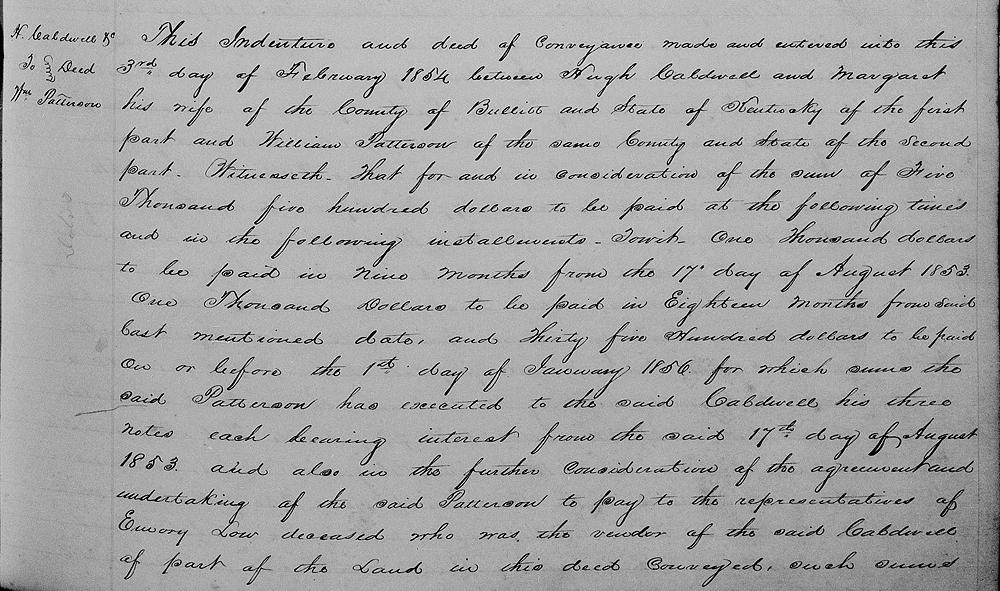 N. Caldwell &c
To Deed
Wm Patterson
This Indenture and deed of Conveyance made and entered into this
3rd day of February 1854 between Hugh Caldwell and Margaret
his wife of the County of Bullitt and State of Kentucky of the first
part and William Patterson of the same County and State of the Second
part. Witnesseth. That for and in consideration of the sum of Five
Thousand five hundred dollars to be paid at the following times
and in the following installments - Towit - One Thousand dollars
to be paid in Nine Months from the 17th day of August 1853.
One Thousand Dollars to be paid in Eighteen Months from said
last mentioned date, and Thirty five Hundred dollars to be paid
On or before the 1st day of January 1856 for which sums the
said Patterson has executed to the said Caldwell his three
notes each bearing interest from the said 17th day of August
1853. and also in the further Consideration of the agreement and
undertaking of the said Patterson to pay to the representatives of
Emory Low deceased who was the vendor of the said Caldwell
of part of the Land in this deed Conveyed, such sums